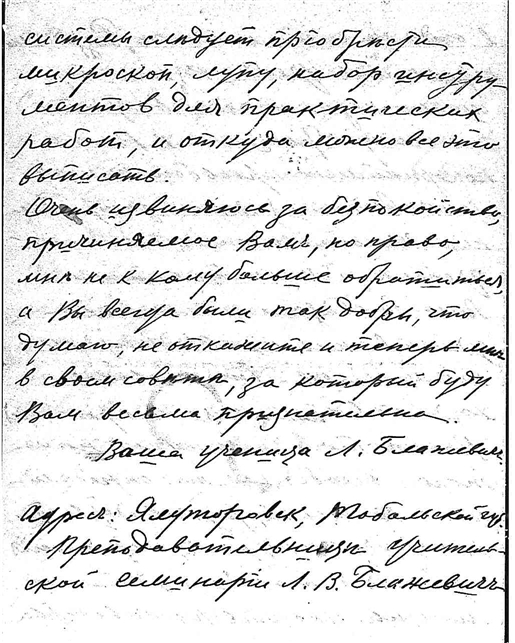 системы слѣдует пріобрѣсти
микроскоп, лупу, набор инстру-
ментов для практических
работ, и откуда можно все это
выписать.
Очень извиняюсь за безпокойство,
причиняемое Вамъ, но право,
мнѣ не к кому больше обратиться,
а Вы всегда были так добры, что
думаю, не откажите и теперь мнѣ
в своем совѣтѣ, за который буду
Вам весьма признательна.
Ваша ученица Л. Блажевич
Адрес: Ялуторовск, Тобольской губ.
Преподавательницѣ учитель-
ской семинаріи Л. В. Блажевичъ